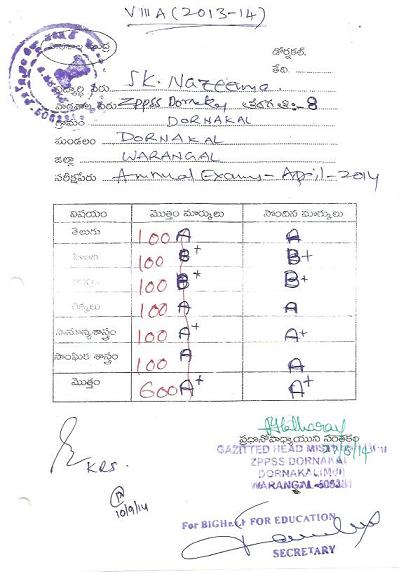 VIII A (2013-14)
డోర్నకల్.
తేది
విద్యార్థి పేరు SK. Nazeema.
పాఠశాల పేరు ZPPSS Dornakal తరగతి:- 8
గ్రామం DORNAKAL
మండలం DORNAKAL
జిల్లా WARANGAL
పరీక్షపేరు Annual Exams - April-2014
విషయం మొత్తం మార్కులు సాందిన మార్కులు
తెలుగు 100 A A
100 B+ B+
100 B+ B+
100 A A
సామాన్యశాస్త్రం 100 A+ A+
సాంఘిక శాస్త్రం 100 A A
మొత్తం 600 A+ A+
ప్రధానోపాధ్యాయుని సంతకం
GAZITTED HEAD
ZPPSS DORNAKAL
DORNAKAL (M)
WARANGAL
KRS.
10/9/14
For BIGHELP FOR EDUCATION
SECRETARY